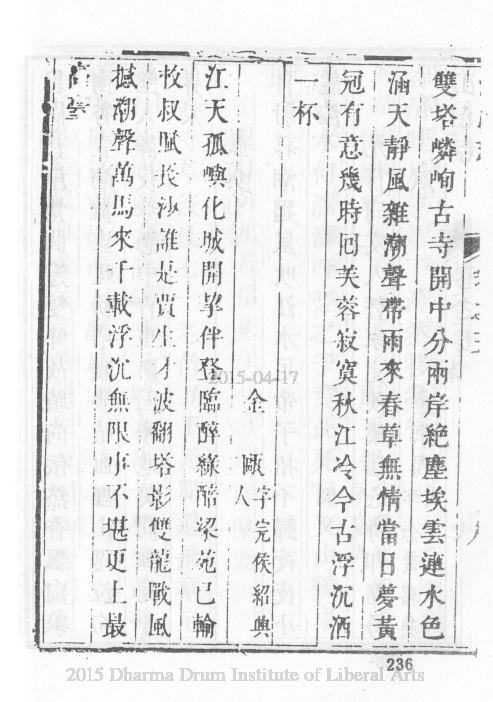 雙塔嶙峋古寺開中分兩岸絶塵埃雲連水色
涵天靜風雜潮聲帶雨來春草無情當日夢黃
冠有意幾時回芙蓉寂寞秋江冷今古浮沉酒
一杯
金 甌字完侯紹興人
江天孤嶼化城開挐伴登臨醉綠醅梁苑已輸
枚叔賦長沙誰是賈生才波翻塔影雙龍戰風
撼潮聲萬馬來千載浮沉無限事不堪更上最
高臺
2015-04-17
236
2015 Dharma Drum Institute of Liberal Arts